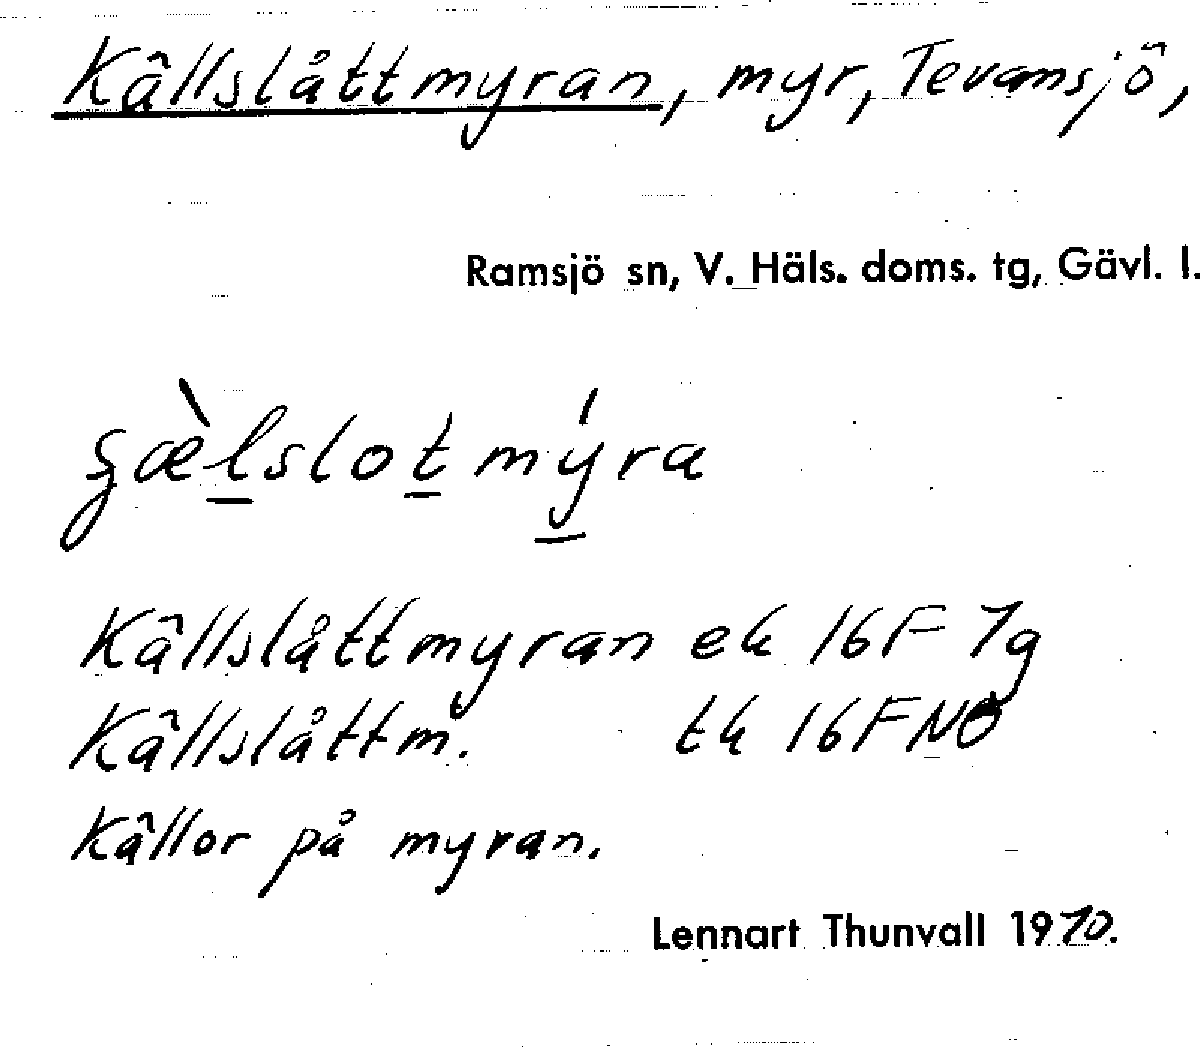 Källslåttmyran, myr, Tevansjö,
Ramsjö sn, V. Häls. doms. tg, Gävl. l.
Källslåttmyran ek 16F 7g
Källslåttm. tk 16F NO
Källor på myran.
Lennart Thunvall 1970.